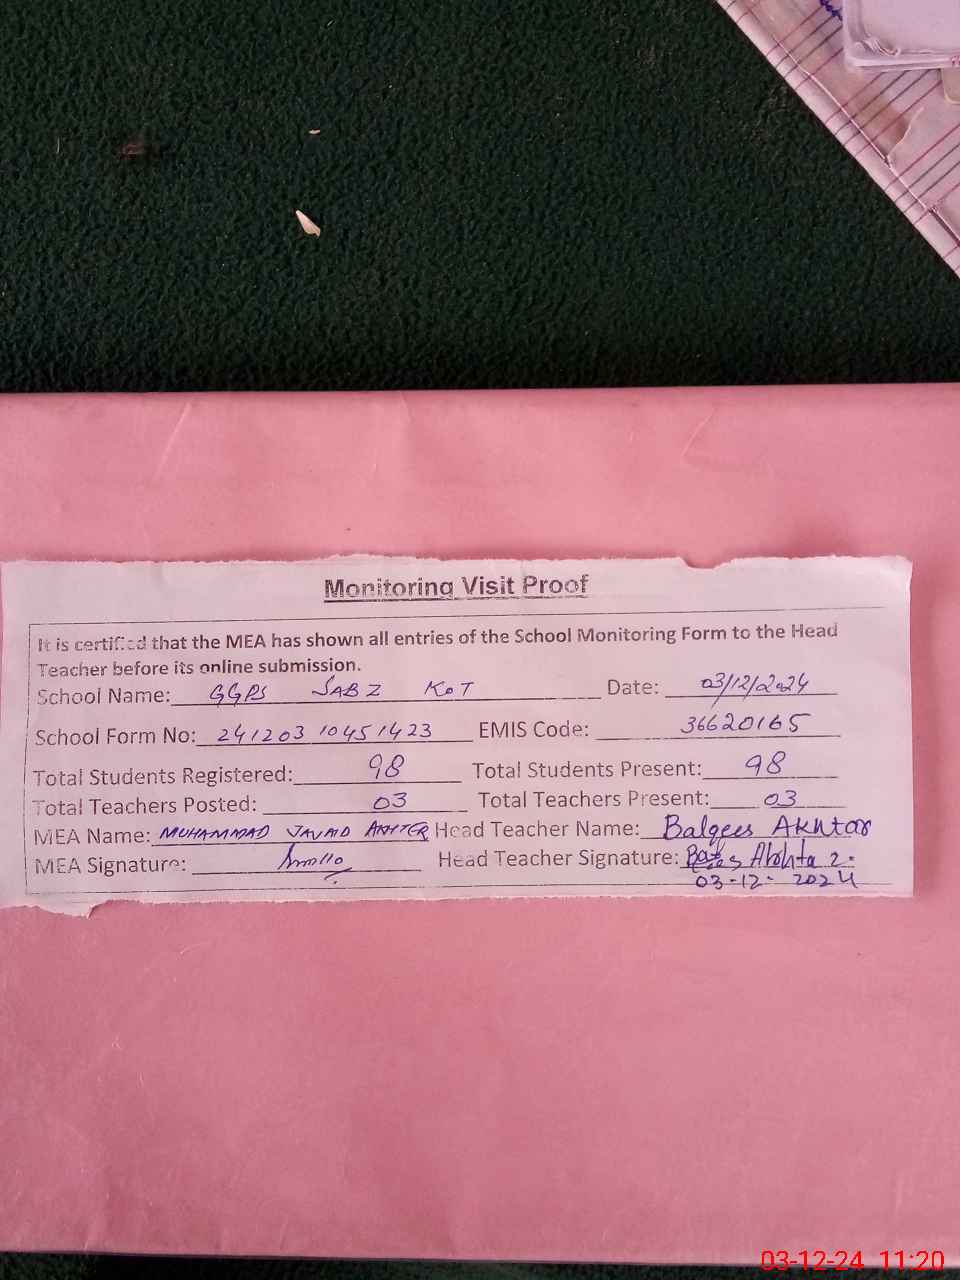 Monitoring Visit Proof
It is certified that the MEA has shown all entries of the School Monitoring Form to the Head
Teacher before its online submission.
School Name: GGPS SABZ KOT Date: 03/12/2024
School Form No: 241203 10451423 EMIS Code: 36620165
Total Students Registered: 98 Total Students Present: 98
Total Teachers Posted: 03 Total Teachers Present: 03
MEA Name: MUHAMMAD JAVAID AKHTER Head Teacher Name: Balqees Akhtar
MEA Signature: Head Teacher Signature:
03-12-2024
03-12-24 11:20